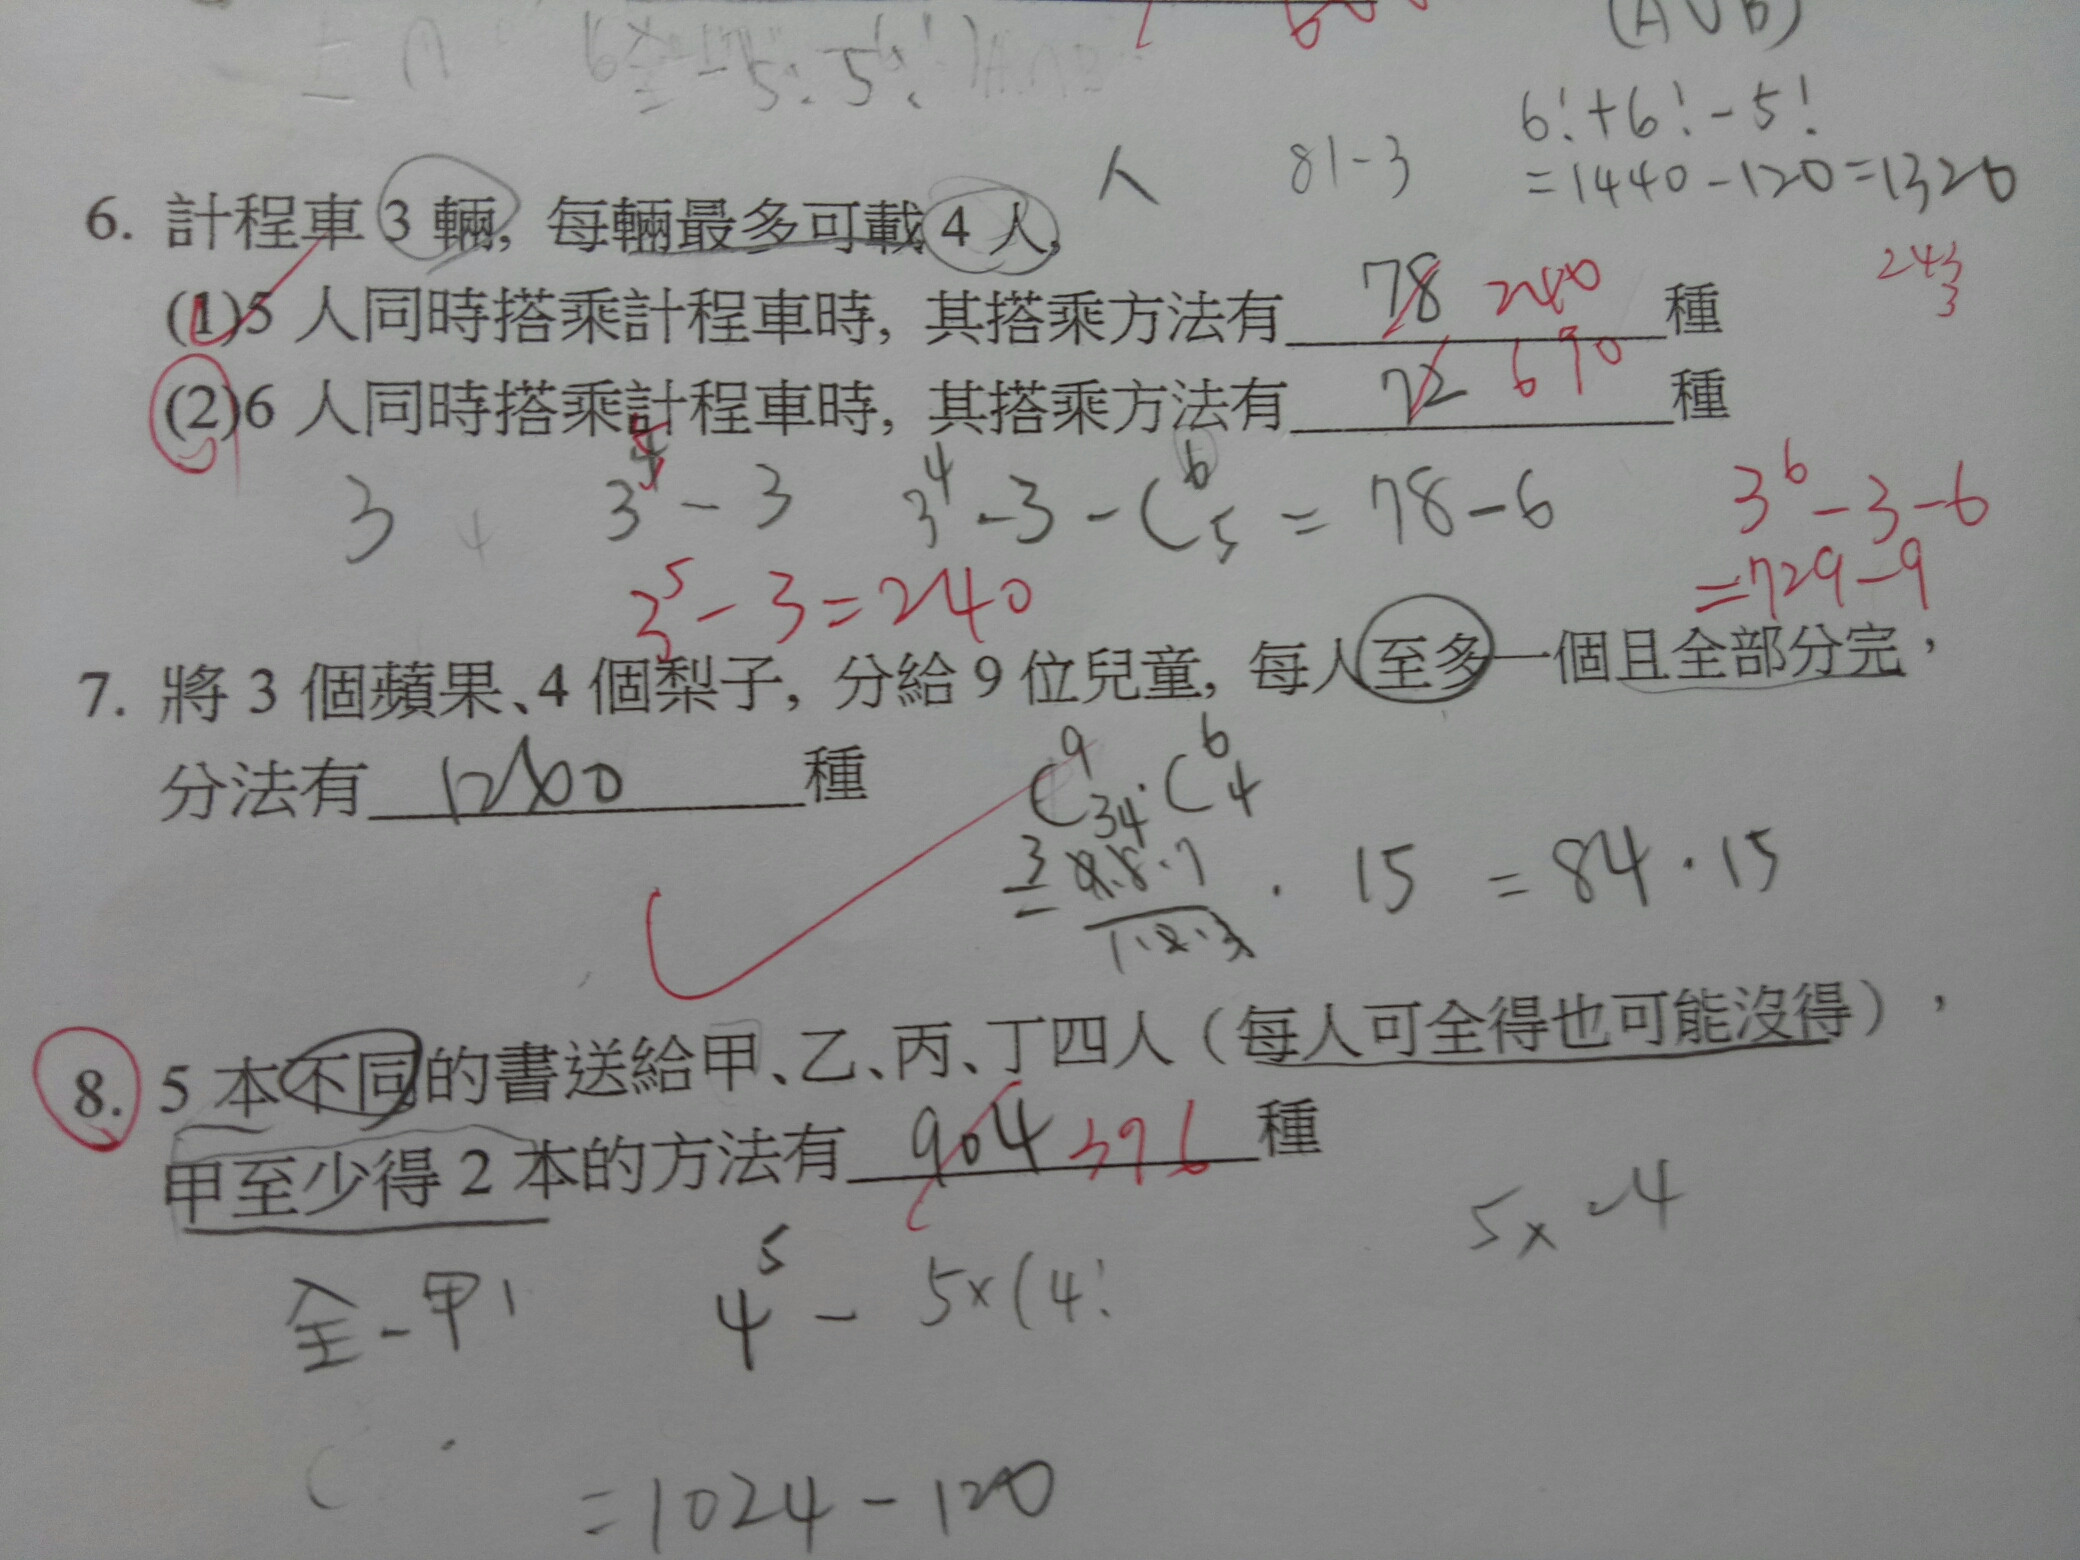 (A∪B)
6!+6!-5!
=1440-120=1320
人 81-3
6. 計程車 3 輛, 每輛最多可載 4 人,
(1)5 人同時搭乘計程車時, 其搭乘方法有 78 240 種
243
3
(2)6 人同時搭乘計程車時, 其搭乘方法有 72 690 種
3 3^5-3 3^4-3-C^6_5=78-6
3^6-3-6
=729-9
3^5-3=240
7. 將 3 個蘋果、4 個梨子, 分給 9 位兒童, 每人至多一個且全部分完,
分法有 1260 種
C^9_3·C^6_4
=9·8·7/1·2·3 · 15 = 84·15
8. 5 本不同的書送給甲、乙、丙、丁四人（每人可全得也可能沒得）,
甲至少得 2 本的方法有 904 396 種
5×4
全-甲1 4^5-5×(4!
=1024-120